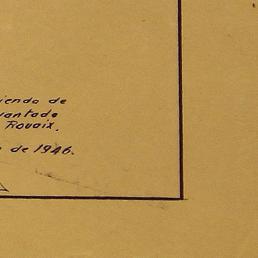 iendo de
vantado
Rouaix.
de 1946.